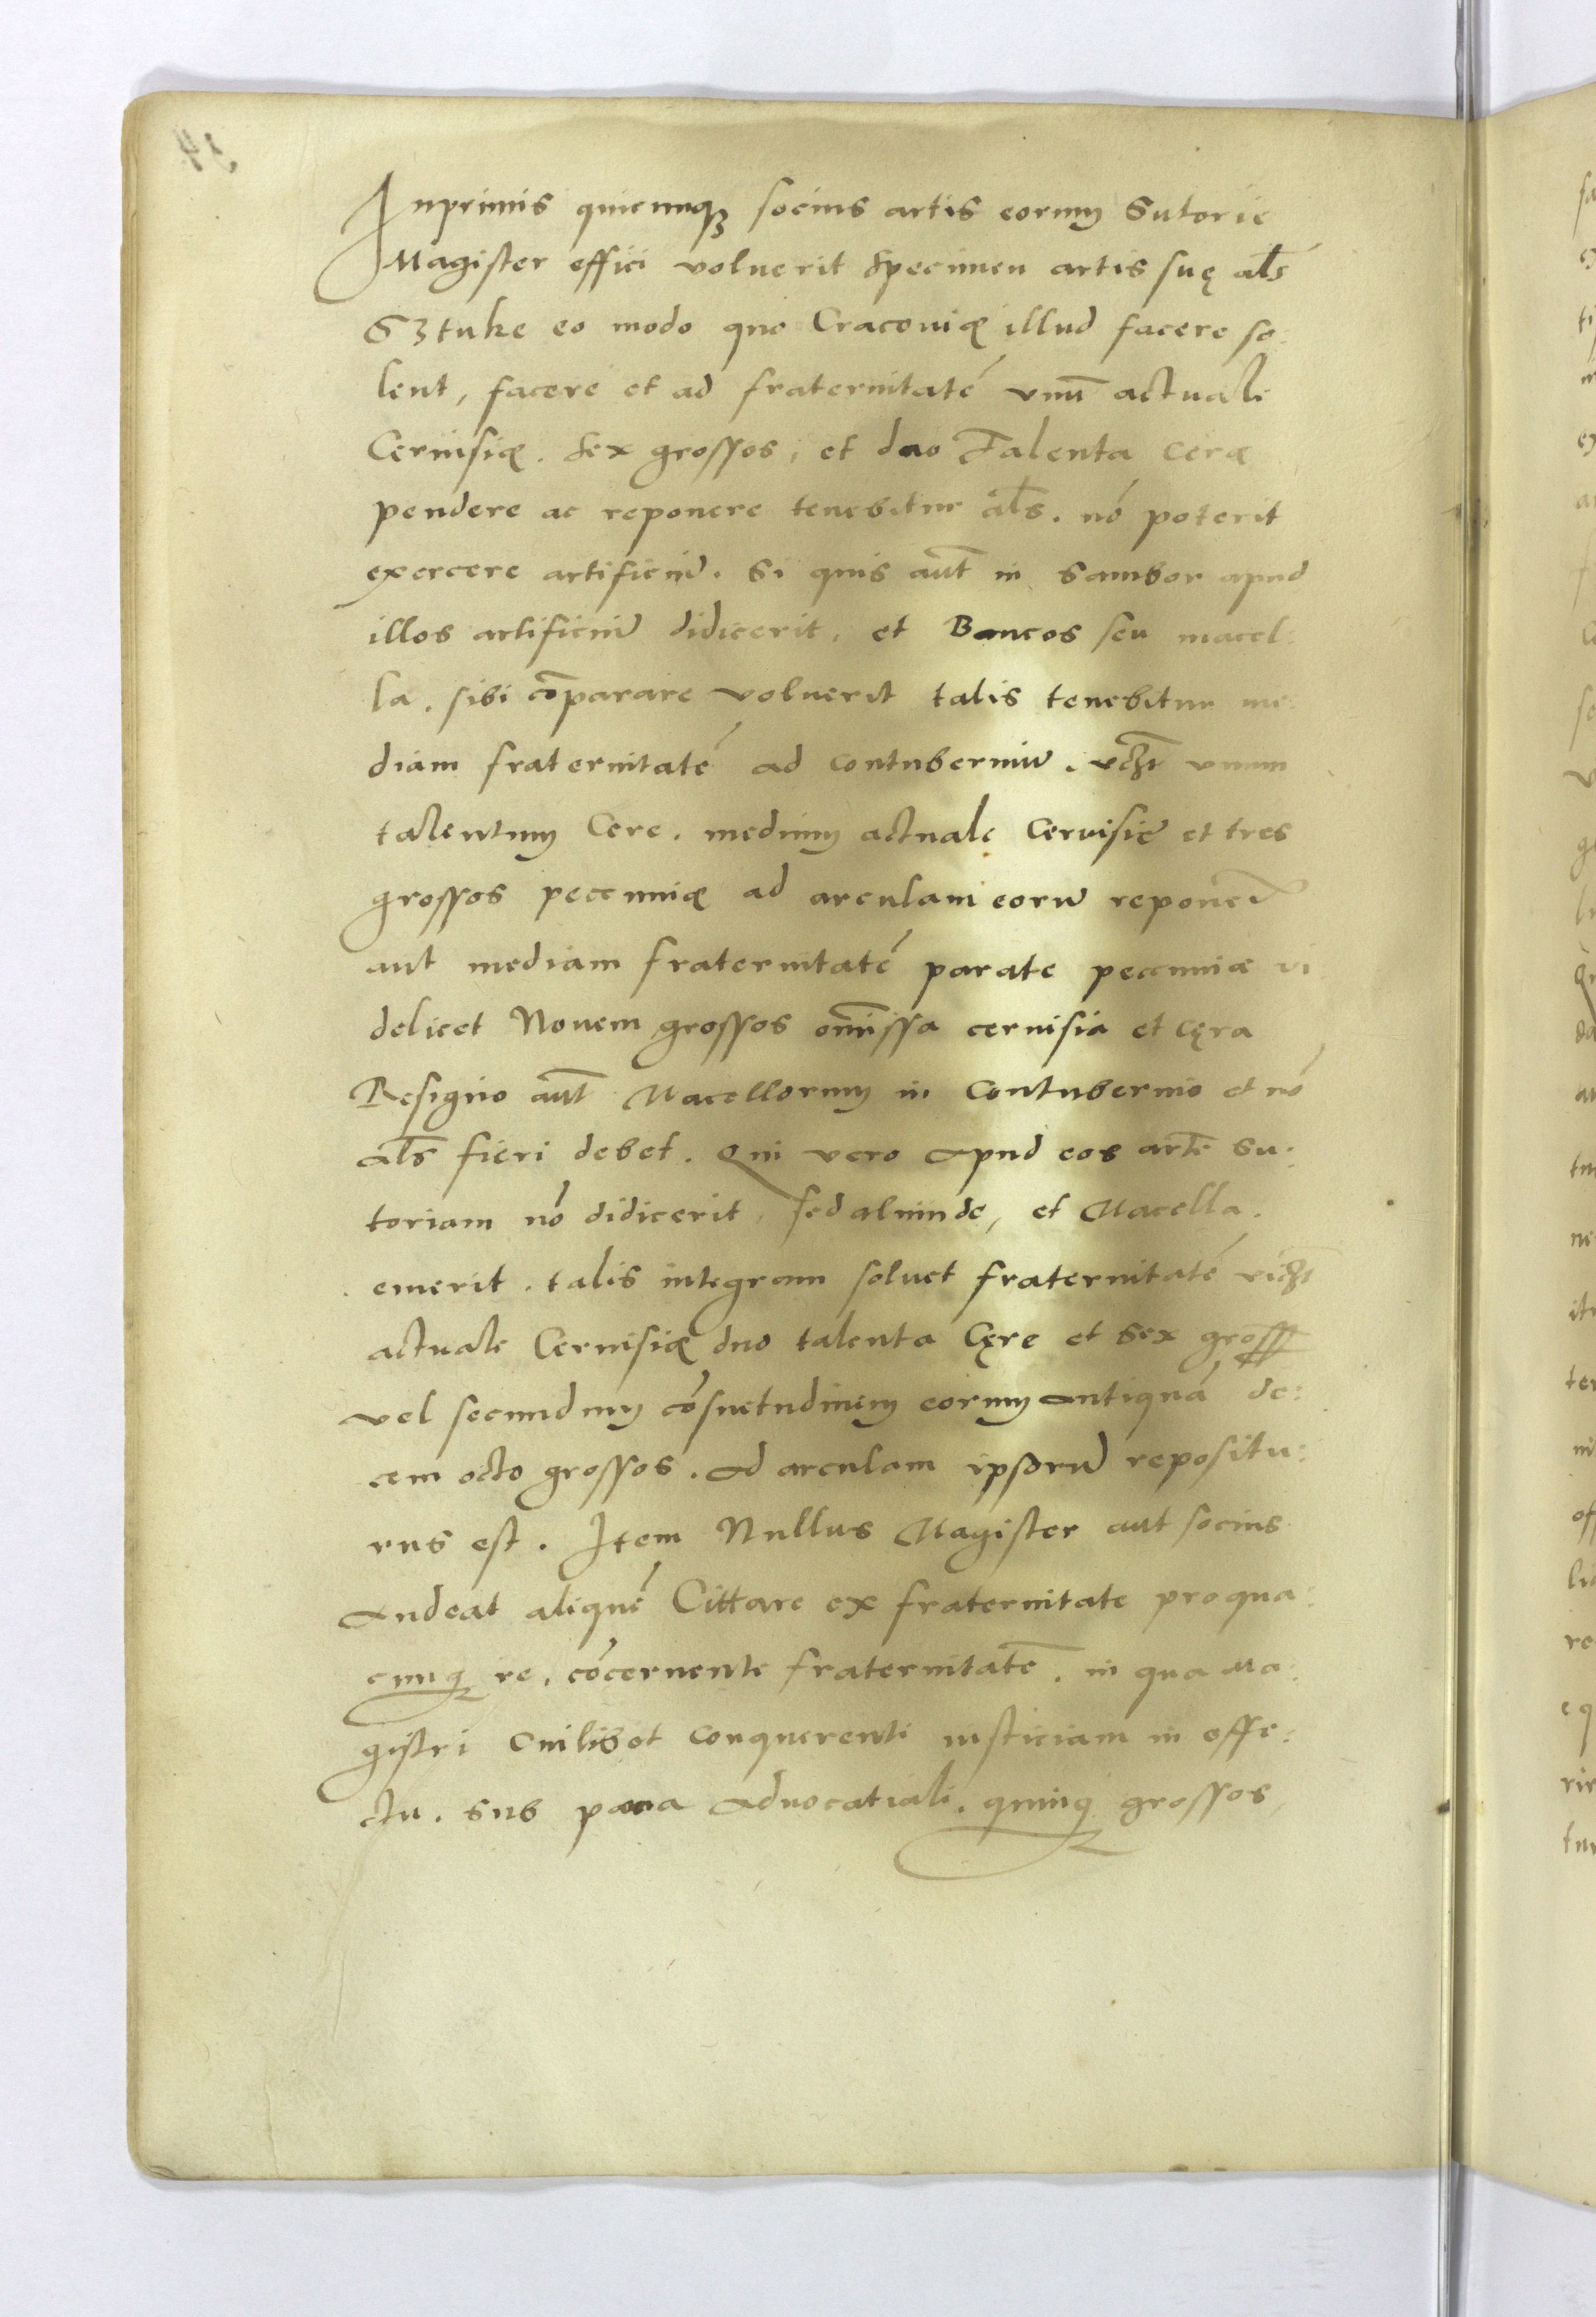 Inprimis quicunqȝ socius artis eorum Sutorie
Magister effici voluerit Specimen artis suę al̄s
Sztuke eo modo quo Cracouię illud facere so:
lent, facere et ad fraternitatē vnū actuale
Ceruisię. Sex grossos, et duo Talenta cerę
pendere ac reponere tenebitur al̄s. nō poterit
exercere artificiū. Si quis aūt in Sambor apud
illos artificiū didicerit, et Bancos seu macel:
la. sibi cōparare voluerit talis tenebitur me:
diam fraternitatē ad contuberniū. vcꝫt vnum
talentum Cere. medium actuale Ceruisię et tres
grossos pecunię ad arculam eorū reponer̄
aut mediam fraternitatē parate pecuniæ vi
delicet Nouem grossos om̄issa ceruisia et cęra
Resigno aūt Macellorum in Contubernio et nō
al̄s fieri debet. Qui vero apud eos artē su:
toriam nō didicerit, sed aliunde, et Macella.
emerit. talis integram soluet fraternitatē vicꝫt
actuale Ceruisię duo talenta Cęre et Sex gross
vel secundum cōsuetudinem eorum antiquā de:
cem octo grossos. ad arculam ipsorū repositu:
rus est. Item Nullus Magister aut socius
audeat aliquē Cittare ex fraternitate pro qua:
cunqȝ re, cōcernente fraternitatē. in qua Ma:
gistri Cuilibet conquerenti iusticiam in effe:
ctu. sub pœna aduocatiali. quinqȝ grossos,